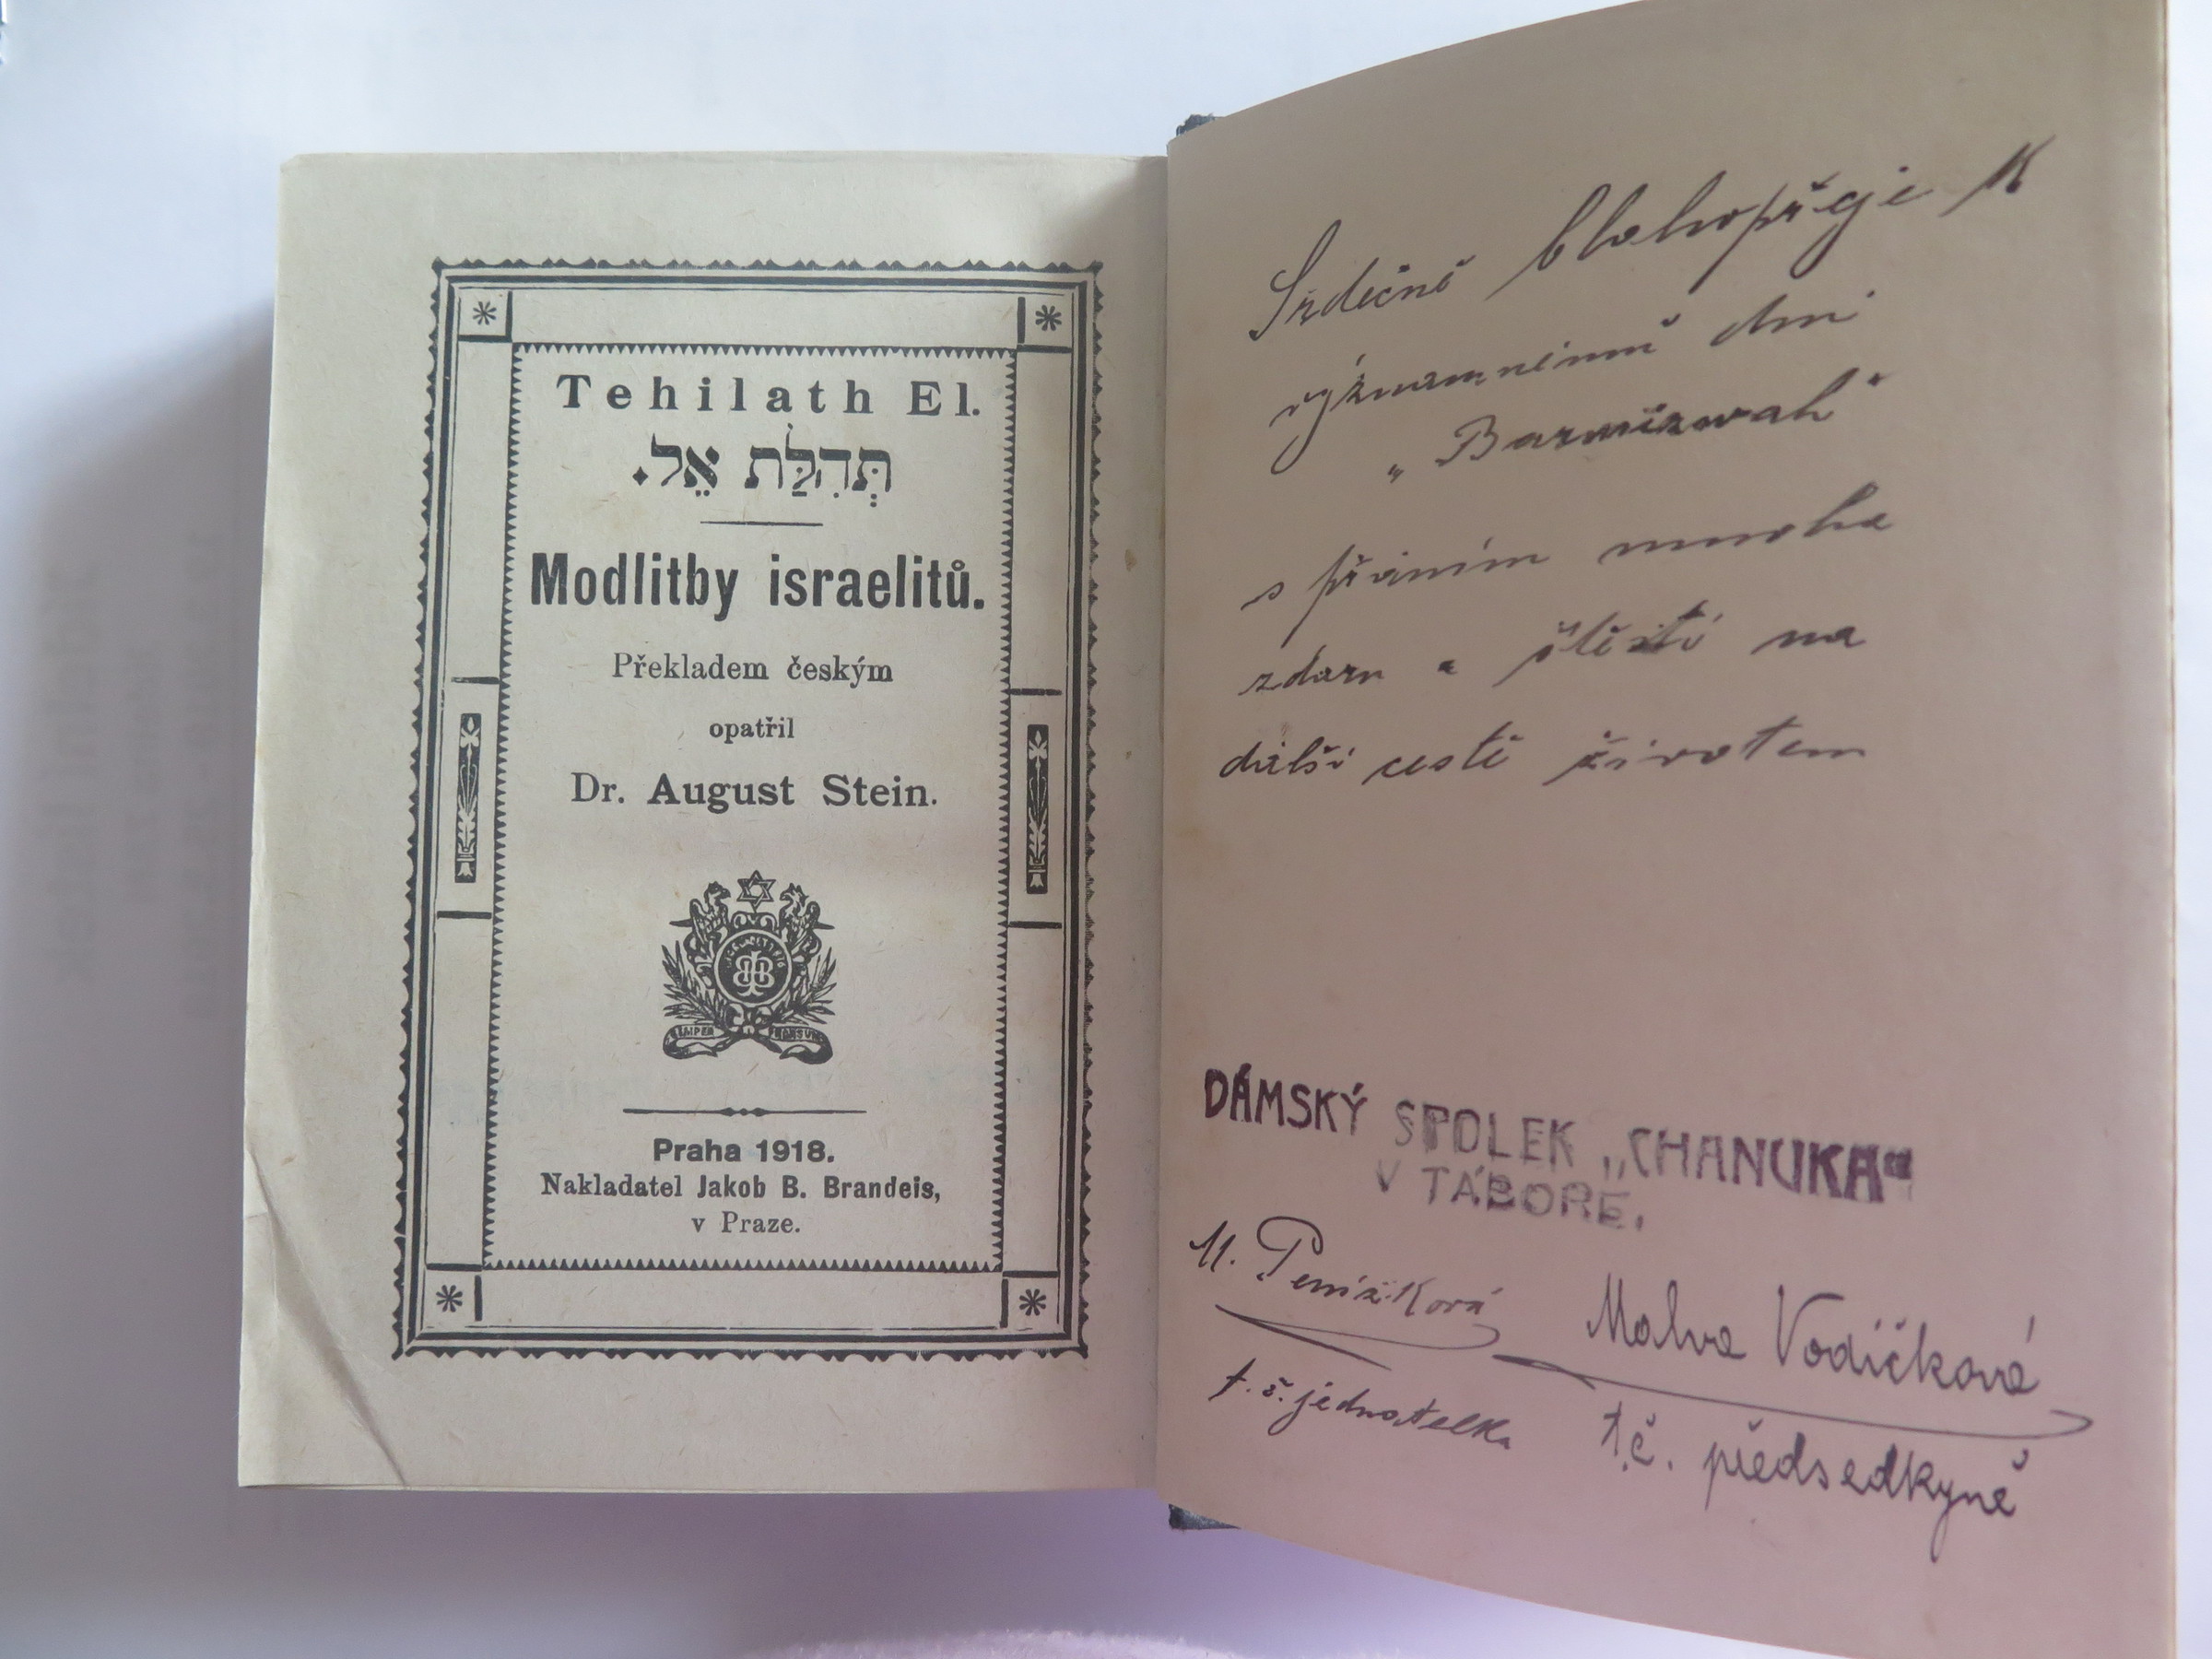 Tehilath El.
תְּהִלַּת אֵל.
Modlitby israelitů.
Překladem českým
opatřil
Dr. August Stein.
SEMPER
Praha 1918.
Nakladatel Jakob B. Brandeis,
v Praze.
Srdečně blahopřeje k
významnému dni
„Barmizwah"
s přáním mnoha
zdaru a štěstí na
další cestě životem
DÁMSKÝ SPOLEK „CHANUKA"
V TÁBOŘE.
M. Penížková
t. č. jednatelka
Malva Vodičková
t.č. předsedkyně